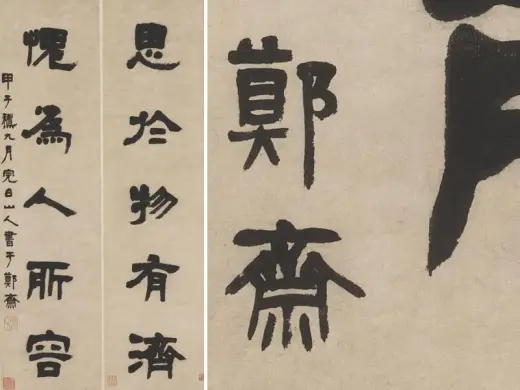 思於物有濟
愧為人所容
甲子穐九月完白山人書于鄭齋
鄭齋